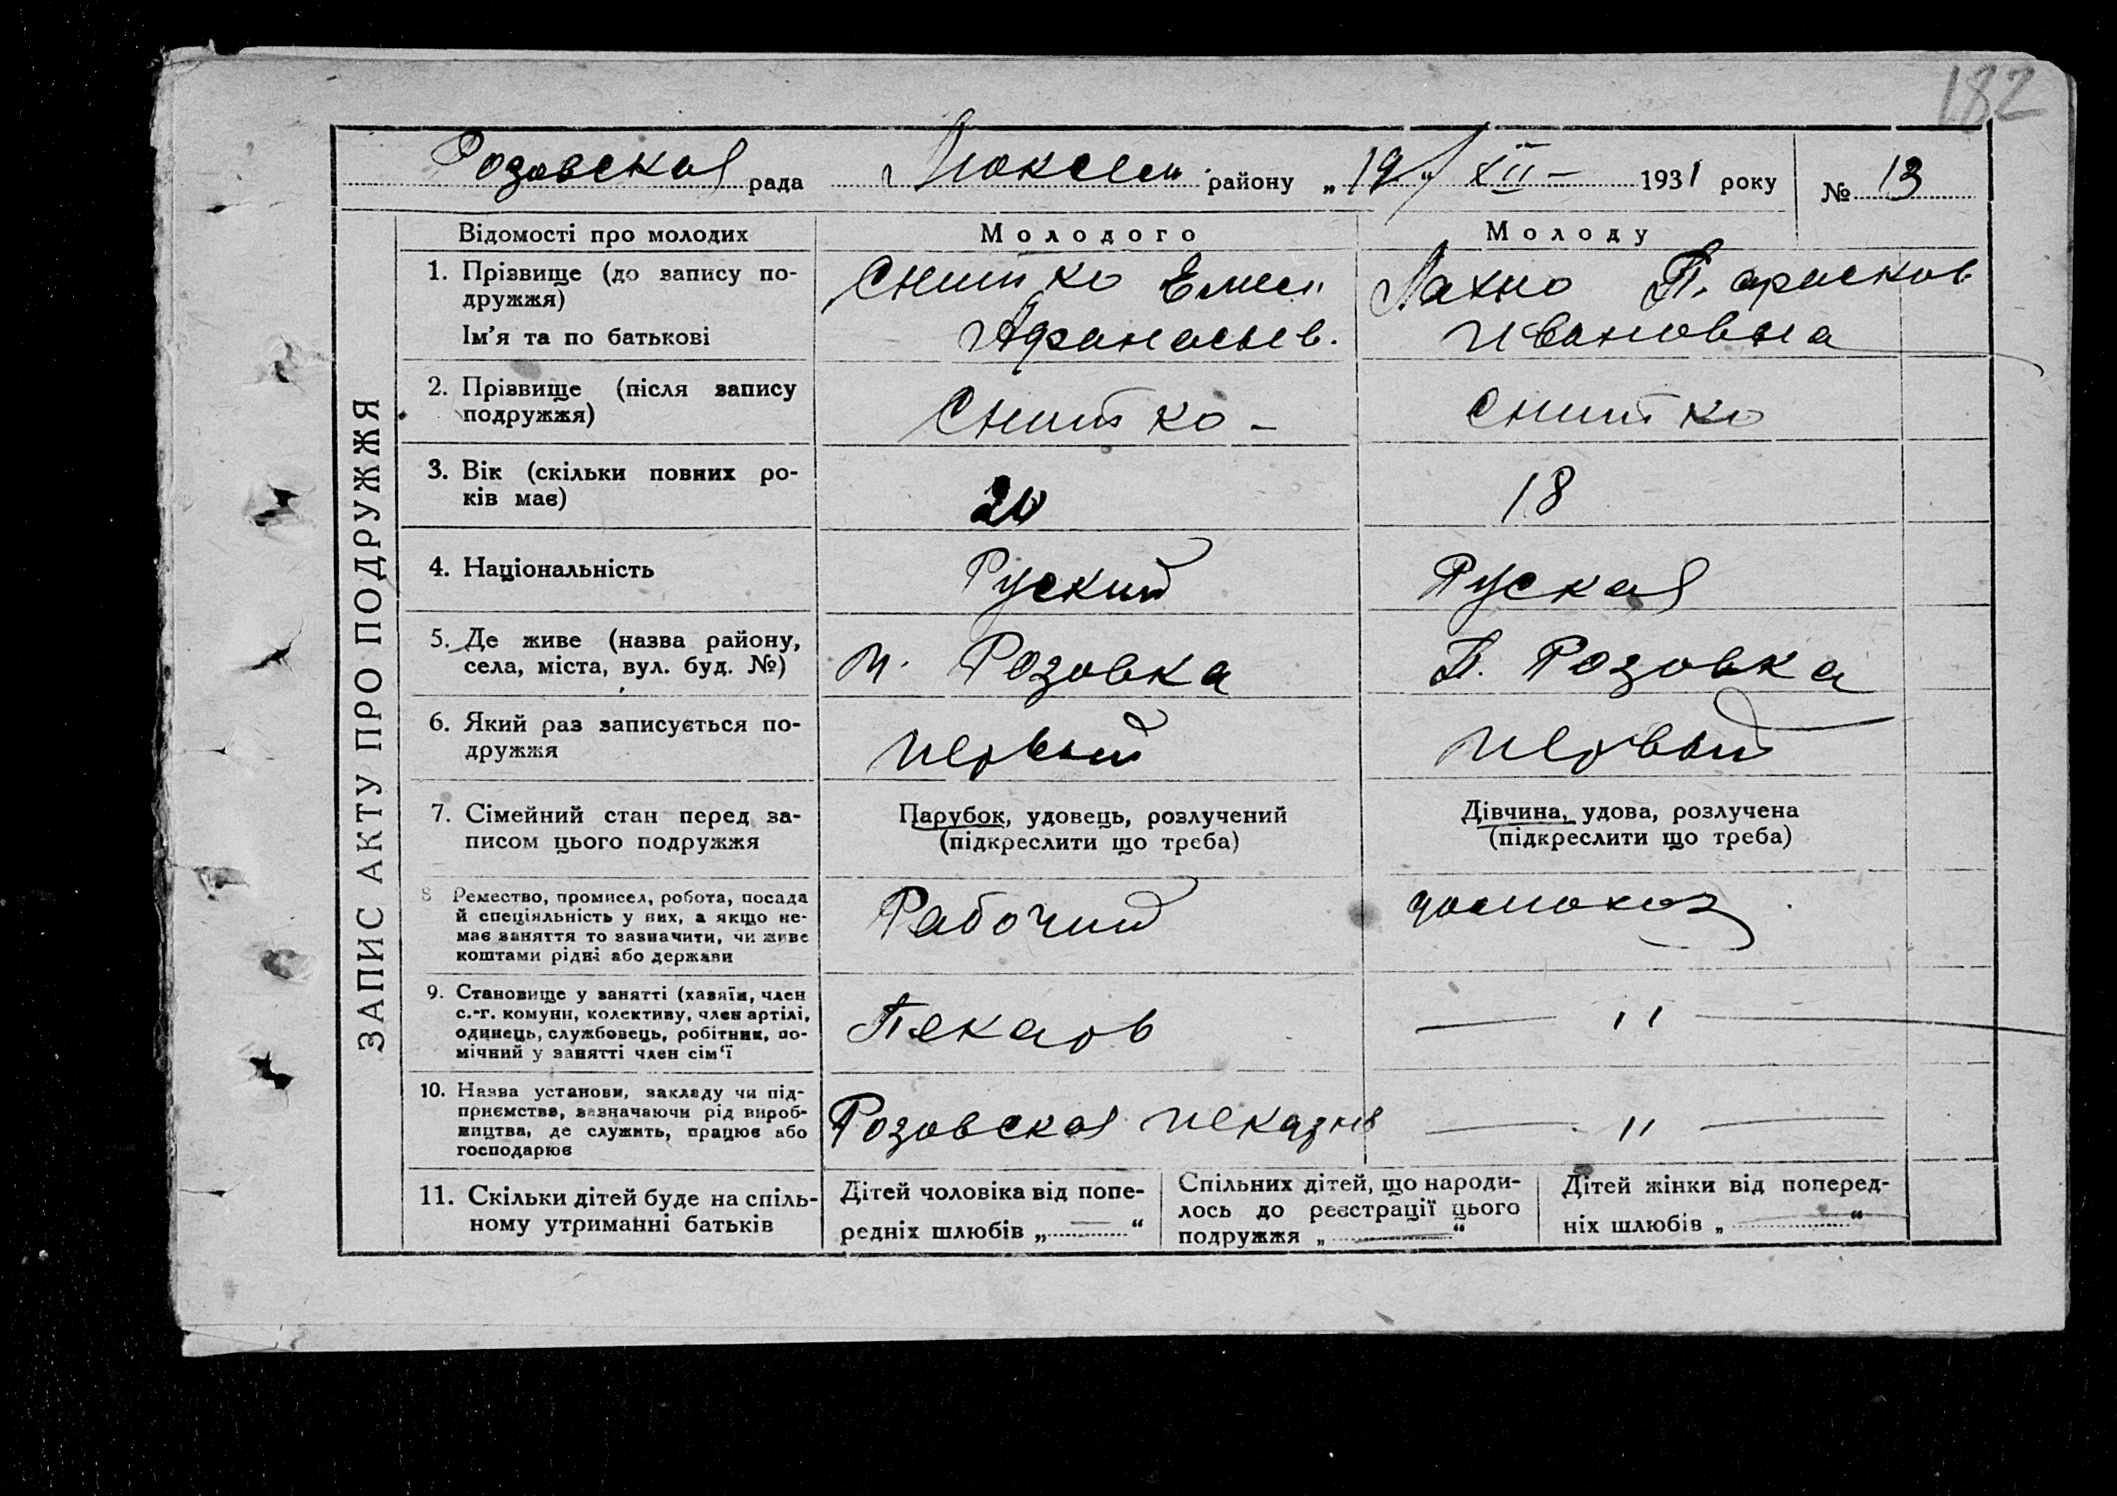 182
Розовская рада Люксем. району „19“ XII – 1931 року № 13
ЗАПИС АКТУ ПРО ПОДРУЖЖЯ
Відомості про молодих Молодого Молоду
1. Прізвище (до запису по-
дружжя)
Ім'я та по батькові
Снитко Емел
Афанасьев.
Лахно Парасков
Ивановна
2. Прізвище (після запису
подружжя)
Снитко –
Снитко
3. Вік (скільки повних ро-
ків має)
20
18
4. Національність
Руский
Руская
5. Де живе (назва району,
села, міста, вул. буд. №)
п. Розовка
П. Розовка
6. Який раз записується по-
дружжя
первый
первый
7. Сімейний стан перед за-
писом цього подружжя
Парубок, удовець, розлучений
(підкреслити що треба)
Дівчина, удова, розлучена
(підкреслити що треба)
8 Ремество, промисел, робота, посада
й спеціяльність у них, а якщо не-
має заняття то зазначити, чи живе
коштами рідні або держави
Рабочий
домохоз
9. Становище у занятті (хазяїн, член
с.-г. комуни, колективу, член артілі,
одинець, службовець, робітник, по-
мічний у занятті член сім'ї
Пекарь
— " —
10. Назва установи, закладу чи під-
приємства, зазначаючи рід вироб-
ництва, де служить, працює або
господарює
Розовская пекарня
— " —
11. Скільки дітей буде на спіль-
ному утриманні батьків
Дітей чоловіка від попе-
редніх шлюбів „ — “
Спільних дітей, що народи-
лось до реєстрації цього
подружжя „ — “
Дітей жінки від поперед-
ніх шлюбів „ — “